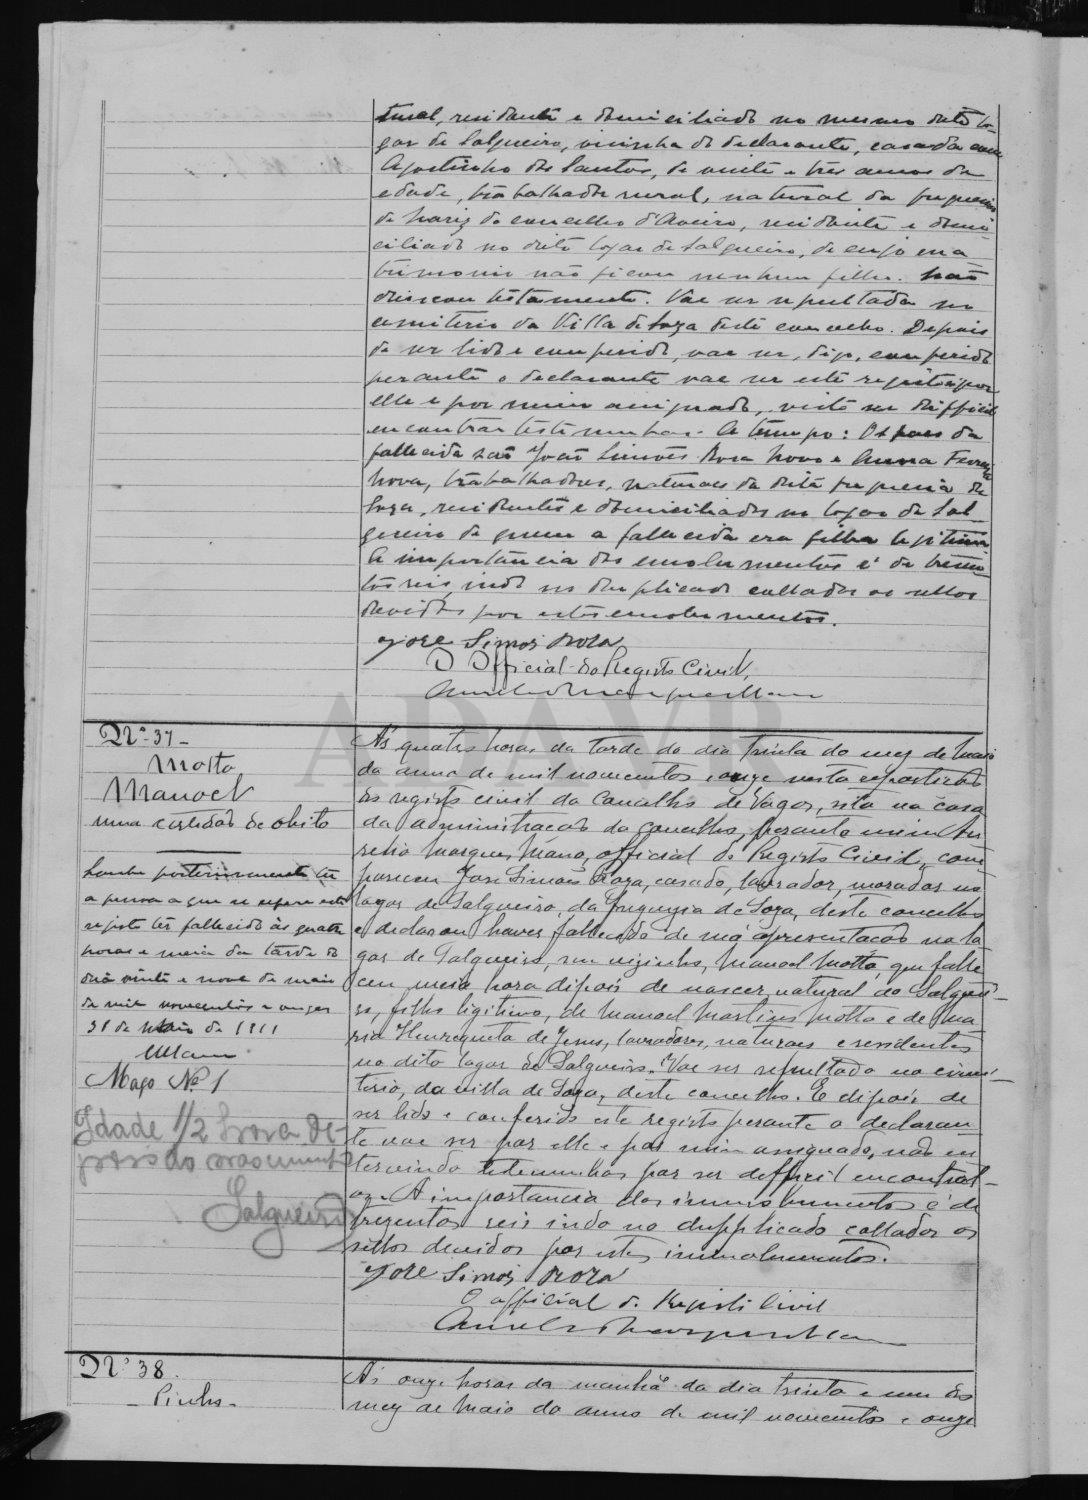 rural, residente e domiciliado no mesmo dito lo-
gar de Salgueiro, visinha do declarante, casada com
Agostinho dos Santos, de vinte e trez annos de
edade, trabalhador rural, natural da freguesia
de Nariz do concelho d'Aveiro, residente e domi
ciliado no dito logar de Salgueiro, de cujo ma
trimonio não ficou nenhum filho. Não
deixou testamento. Vae ser sepultada no
cemiterio da Villa de Soza deste concelho. Depois
de ser lido e conferido, vae ser, digo, conferido
perante o declarante vae ser este registo por
elle e por mim assignado, visto ser difficil
encontrar testemunhas. A tempo: Os paes da
fallecida são João Simões Rosa Novo e Anna Ferreira
Nova, trabalhadores, naturaes da dita freguesia de
Soza, residentes e domiciliados no logar de Sal
gueiro de quem a fallecida era filha legitima.
A importancia dos emolumentos é de trezen-
tos reis, indo no duplicado collados os sellos
devidos por estes emolumentos.
Jose Simões Roza
O Official do Registo Civil,
ADAVR
Nº 37-
Motta
Manoel
uma certidão de obito
posteriormente
a pessoa a que se refere este
registo ter fallecido ás quatro
horas e meia da tarde do
dia vinte e nove de maio
de mil novecentos e onze
31 de Maio de 1911
Mano
Maço Nº 1
Idade 1/2 hora de-
pois do nascimento
Salgueiro
Ás quatro horas da tarde do dia trinta do mez de Maio
do anno de mil novecentos e onze nesta repartição
do registo civil do Concelho de Vagos, sita na casa
da administração do concelho, perante mim Au
relio Marques Mano, official do Registo Civil, com
pareceu Jose Simões Roza, casado, lavrador, morador no
logar de Salgueiro, da freguezia de Soza, deste concelho
e declarou haver fallecido de má apresentação no lo
gar de Salgueiro, seu vizinho, Manoel Motta, que falle
ceu meia hora dipois de nascer, natural do Salguei-
ro, filho ligitimo, de Manoel Martins Motta e de Ma
ria Henriqueta de Jesus, lavradores, naturaes e residentes
no dito logar de Salgueiro. Vae ser sepultado no cimi-
terio, da villa de Soza, deste concelho. E dipois de
ser lido e conferido este registo perante o declaran
te vae ser por elle e por mim assignado, não in
tervindo testemunhas por ser defficil encontral-
as. A importancia dos imnolumentos é de
trezentos reis indo no dupplicado collados os
sellos devidos por estes imnolumentos.
Jose Simões Roza
O official do Registo Civil
Nº 38.
- Pinho -
Ás onze horas da manhã do dia trinta e um do
mez de Maio do anno de mil novecentos e onze